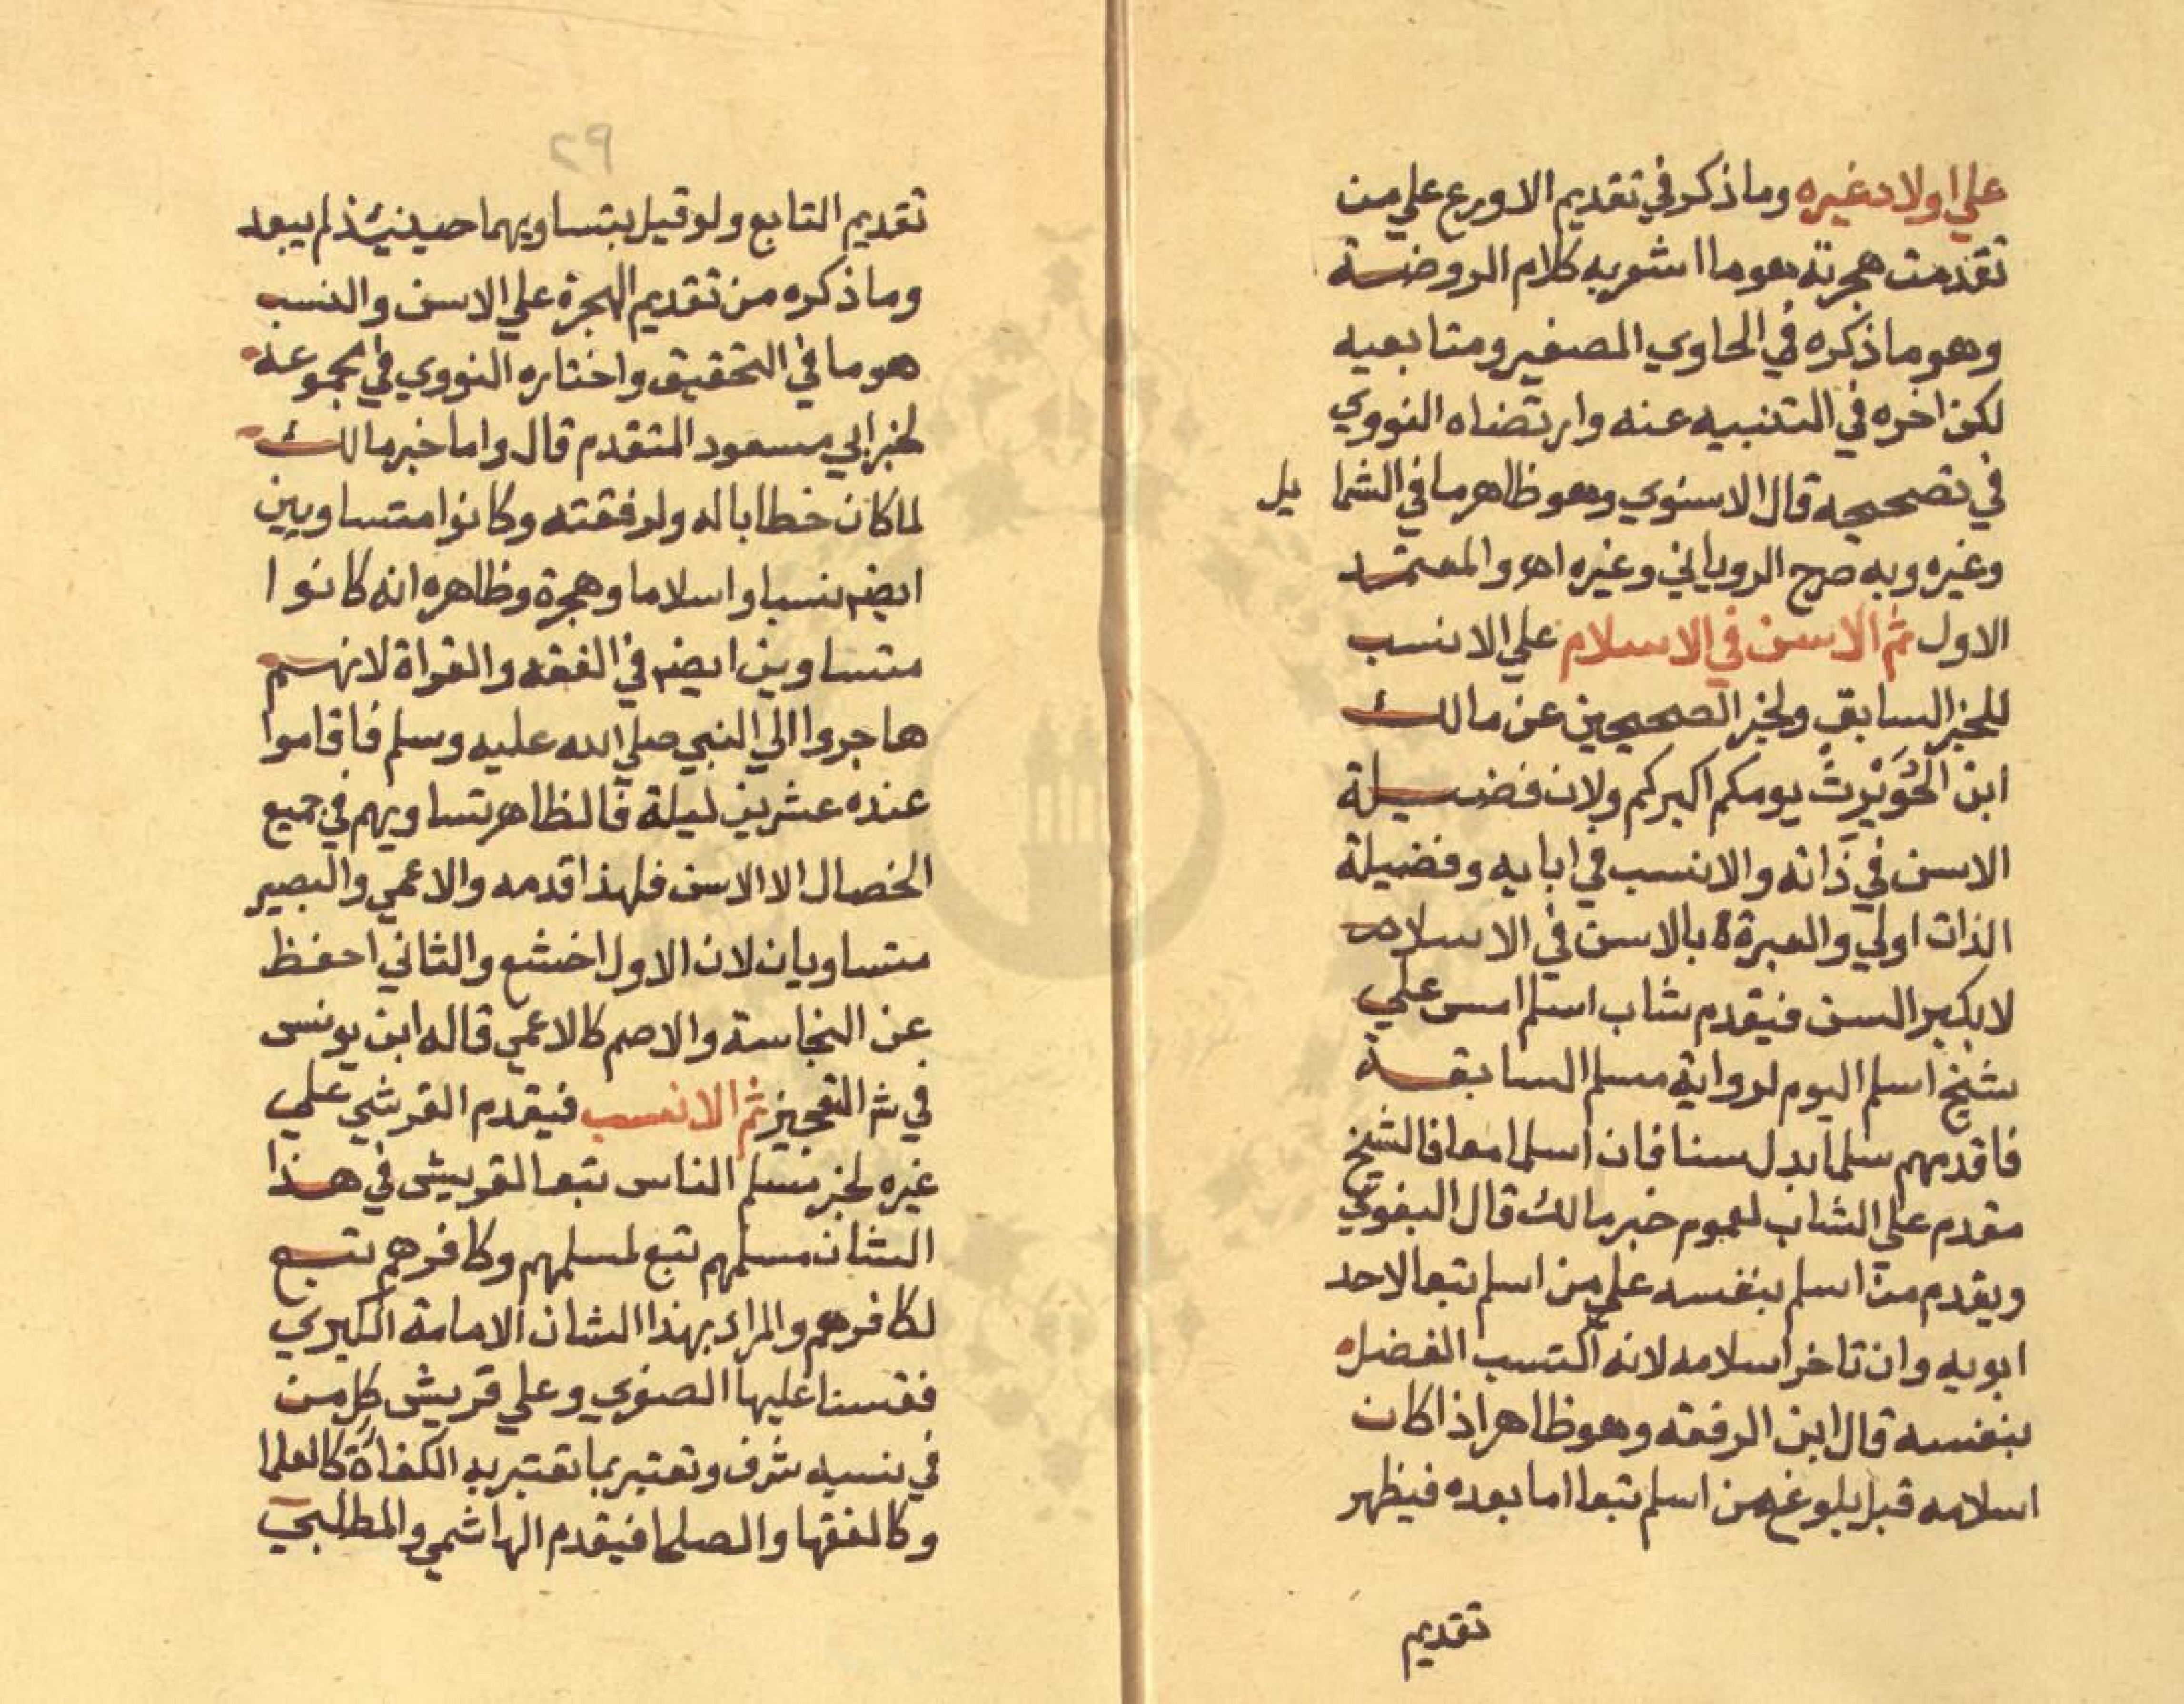 علي اولاد غيره وما ذكر في تقديم الاورع علي من
تقدمت هجرته هو ما اشعر به كلام الروضة
وهو ما ذكره في الحاوي الصغير ومتابعيه
لكن اخره في التنبيه عنه وارتضاه النووي
في تصحيحه قال الاسنوي وهو ظاهر ما في الشمايل
وغيره وبه صرح الروياني وغيره اه والمعتمد
الاول ثم الاسن في الاسلام علي الانسب
للخبر السابق ولخبر الصحيحين عن مالك
ابن الحُوَيْرِثْ يومكم اكبركم ولان فضيلة
الاسن في ذاته والانسب في ابايه وفضيلة
الذات اولي والعبرة بالاسن في الاسلام
لا بكبر السن فيقدم شاب اسلم امس علي
شيخ اسلم اليوم لرواية مسلم السابقة
فاقدمهم سلما بدل سنا فان اسلما معا فالشيخ
مقدم علي الشاب لعموم خبر مالك قال البغوي
ويقدم من اسلم بنفسه علي من اسلم تبعا لاحد
ابويه وان تاخر اسلامه لانه اكتسب الفضل
بنفسه قال ابن الرفعه وهو ظاهر اذا كان
اسلامه قبل بلوغ من اسلم تبعا اما بعده فيظهر
تقديم
٩٢
تقديم التابع ولو قيل بتساويهما حينيئذ لم يبعد
وما ذكره من تقديم الهجرة علي الاسن والنسب
هو ما في التحقيق واختاره النووي في مجموعه
لخبر ابي مسعود المتقدم قال واما خبر مالك
لما كان خطابا له ولرفقته وكانوا متساويين
ايضم نسبا واسلاما وهجرة وظاهره انه كانوا
متساوين ايضم في الفقه والقراة لانهم
هاجروا الي النبي صلي الله عليه وسلم فاقاموا
عنده عشرين ليلة فالظاهر تساويهم في جميع
الخصال الا الاسن فلهذا قدمه والاعمي والبصير
متساويان لان الاول اخشع والثاني احفظ
عن النجاسة والاصم كالاعمي قاله ابن يونس
في شر التعجيز ثم الانسب فيقدم القرشي علي
غيره لخبر مسلم الناس تبعا لقريش في هذا
الشان مسلمهم تبع لمسلمهم وكافرهم تبع
لكافرهم والمراد بهذا الشان الامامة الكبري
فقسنا عليها الصغري وعلي قريش كل من
في نسبه شرف وتعتبر بما تعتبر به الكفاءة كالعلما
وكالفقها والصلحا فيقدم الهاشمي والمطلبي